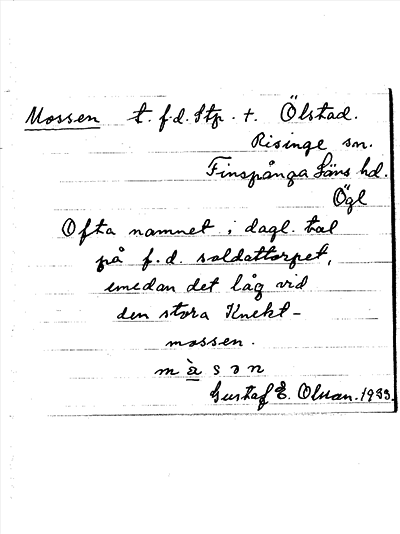 Mossen t. f.d. Stp. t. Ölstad.
Risinge sn.
Finspånga Läns hd.
Ögl
Ofta namnet i dagl. tal
på f.d. soldattorpet,
emedan det låg vid
den stora Knekt-
mossen.
m à s o n
Gustaf E. Olsson. 1933.